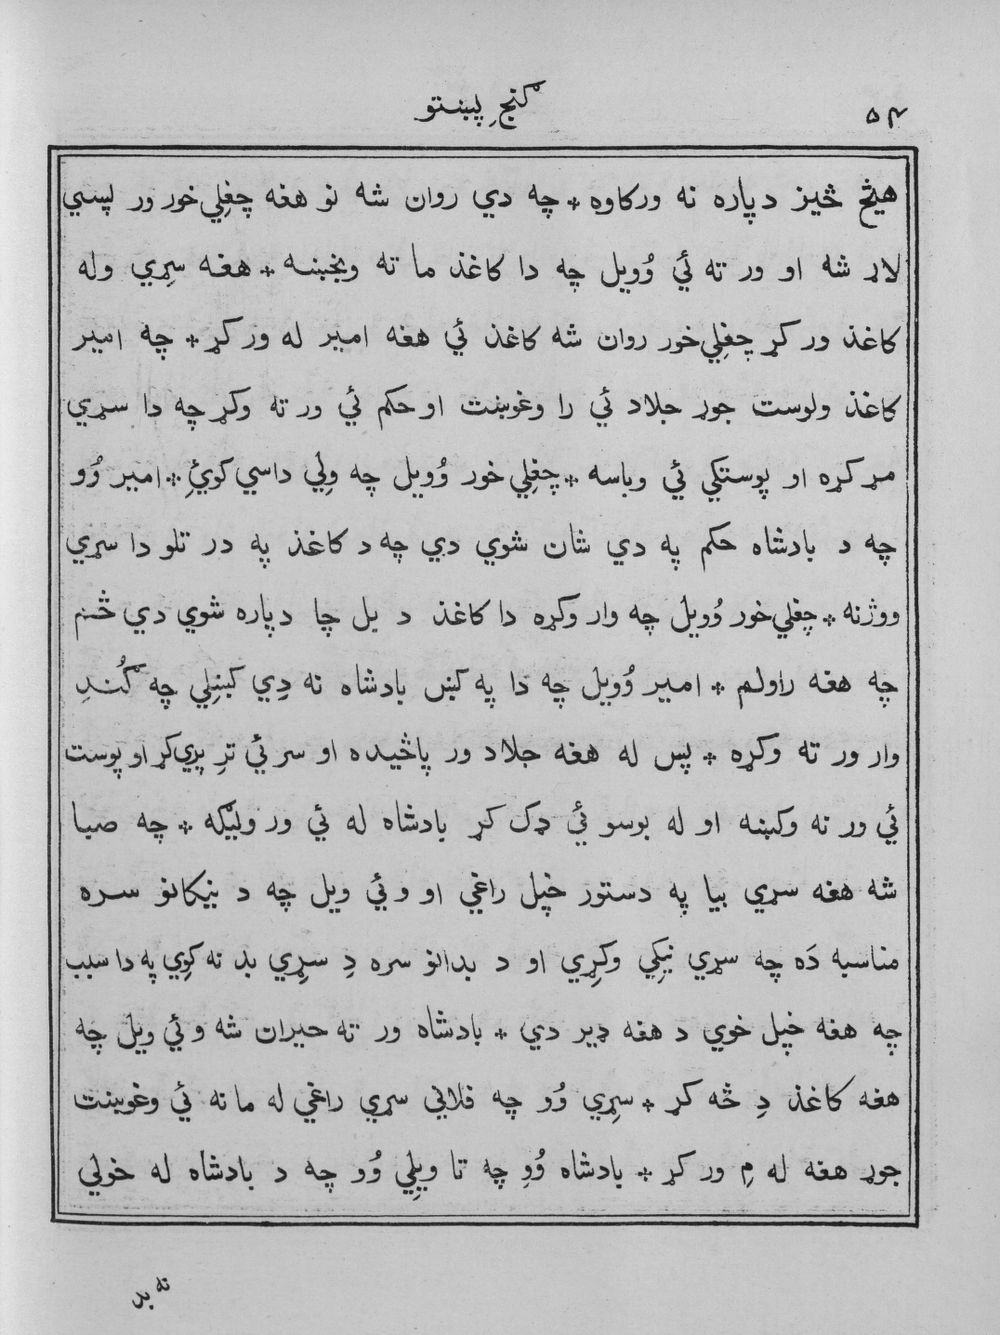 ۵۴
گنجِ پښتو
هيڅ څيز دپاره نه ورکاوه * چه دي روان شه نو هغه چغلِي‌خور ور پسي
لاړ شه او ور ته ئي وُويل چه دا کاغذ ما ته وبخښه * هغه سړِي وله
کاغذ ور کړ چغلِي‌خور روان شه کاغذ ئي هغه امير له ور کړ * چه امير
کاغذ ولوست جوړ جلاد ئي را وغوښت او حکم ئي ور ته وکړ چه دا سړي
مړ کړه او پوستکي ئي وباسه * چغلِي خور وُويل چه ولِي داسي کوئِ * امير وُو
چه د بادشاه حکم په دي شان شوي دي چه د کاغذ په در تلو دا سړي
ووژنه * چغلي‌خور وُويل چه وار وکړه دا کاغذ د بل چا دپاره شوي دي څنم
چه هغه راولم * امير وُويل چه دا په کښ بادشاه نه دِي کښلِي چه گُندِ
وار ور ته وکړه * پس له هغه جلاد ور پاڅيده او سر ئي ترِ پرِي‌کړ او پوست
ئي ور ته وکښه او له بوسو ئي ډک کړ بادشاه له ئي ور وليګه * چه صبا
شه هغه سړي بيا په دستور خپل راغي او وئي ويل چه د نيکانو سره
مناسبه دَه چه سړي نيکِي وکړِي او د بدانو سره دِ سړِي بد نه کوِي په دا سبب
چه هغه خپل خوي د هغه ډير دي * بادشاه ور ته حيران شه وئي ويل چه
هغه کاغذ دِ څه کړ * سړِي وُو چه فلاني سړي راغي له ما نه ئي وغوښت
جوړ هغه له مِ ور کړ * بادشاه وُوِ چه تا ويلِي وُو چه د بادشاه له خولي
نه بد